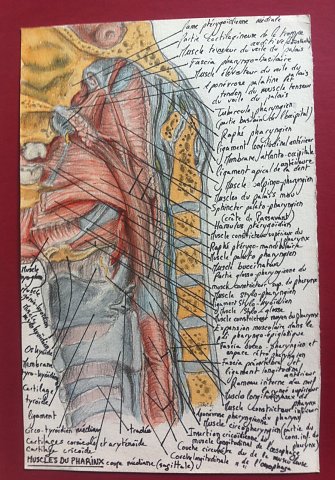 Lame ptérygoïdienne médiale
Partie cartilagineuse de la trompe
auditive
Muscle tenseur du voile du palais
Fascia pharyngo-basilaire
Muscle élévateur du voile du palais
Aponévrose palatine
tendon du muscle tenseur
du voile du palais
Tubercule pharyngien
(partie basilaire de l'occipital)
Raphé pharyngien
Ligament longitudinal antérieur
Membrane atlanto-occipitale
antérieure
Ligament apical de la dent
Muscle salpingo-pharyngien
Muscles du palais mou
Sphincter palato-pharyngien
(crête de Passavant)
Hamulus ptérygoïdien
Muscle constricteur supérieur du
pharynx
Raphé ptérygo-mandibulaire
Muscle palato pharyngien
Muscle buccinateur
Partie glosso-pharyngienne du
muscle constricteur sup. du pharynx
Muscle stylo-pharyngien
Ligament stylo-hyoïdien
Muscle stylo-glosse
Muscle constricteur moyen du pharynx
Expansion musculaire dans le
pli pharyngo-épiglottique
Fascia bucco pharyngien et
espace rétro pharyngien
Fascia prévertébral
ligament longitudinal
antérieur
Rameau interne du nerf
laryngé supérieur
Muscle longitudinaux du
pharynx
Muscle Constricteur inférieur
du pharynx
Aponévrose pharyngienne
Muscle crico pharyngien
Insertion cricoïdienne du
muscle longitudinal de l'oesophage
Couche circulaire
Couche longitudinale
de l'oesophage
Muscle
Os hyoïde
Membrane
thyro-hyoïdienne
Cartilage
tyroïde
Ligament
Crico-tyroïdien médian
trachée
Cartilages corniculé et aryténoïde
Cartilage cricoïde
MUSCLES DU PHARINX coupe médiane (sagittale)